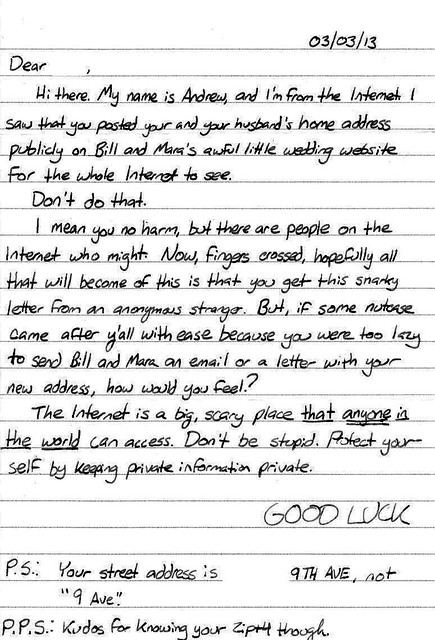 03/03/13
Dear ,
Hi there. My name is Andrew, and I'm from the Internet. I
saw that you posted your and your husband's home address
publicly on Bill and Mara's awful little wedding website
for the whole Internet to see.
Don't do that.
I mean you no harm, but there are people on the
Internet who might. Now, fingers crossed, hopefully all
that will become of this is that you get this snarky
letter from an anonymous stranger. But, if some nutcase
came after y'all with ease because you were too lazy
to send Bill and Mara an email or a letter with your
new address, how would you feel?
The Internet is a big, scary place that anyone in
the world can access. Don't be stupid. Protect your-
self by keeping private information private.
GOOD LUCK
P.S.: Your street address is 9TH AVE, not
"9 Ave".
P.P.S.: Kudos for knowing your Zip+4 though.